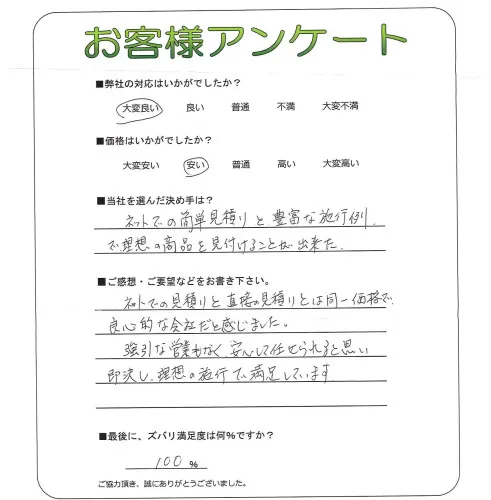 お客様アンケート
■弊社の対応はいかがでしたか？
大変良い 良い 普通 不満 大変不満
■価格はいかがでしたか？
大変安い 安い 普通 高い 大変高い
■当社を選んだ決め手は？
ネットでの簡単見積りと豊富な施行例
で理想の商品を見付けることが出来た。
■ご感想・ご要望などをお書き下さい。
ネットでの見積りと直接の見積りとは同一価格で
良心的な会社だと感じました。
強引な営業もなく、安心して任せられると思い
即決し、理想の施行で満足しています
■最後に、ズバリ満足度は何%ですか？
100 %
ご協力頂き、誠にありがとうございました。